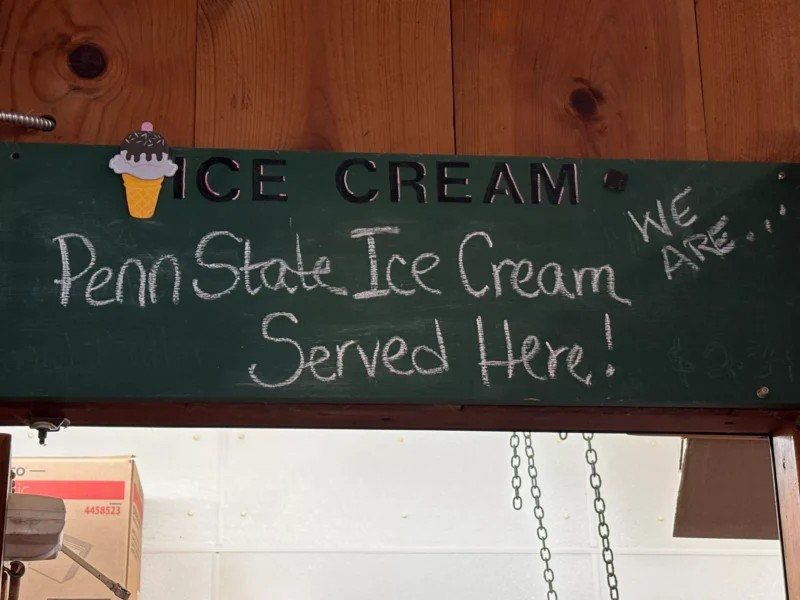 ICE CREAM
Penn State Ice Cream
Served Here!
WE
ARE...
4458523